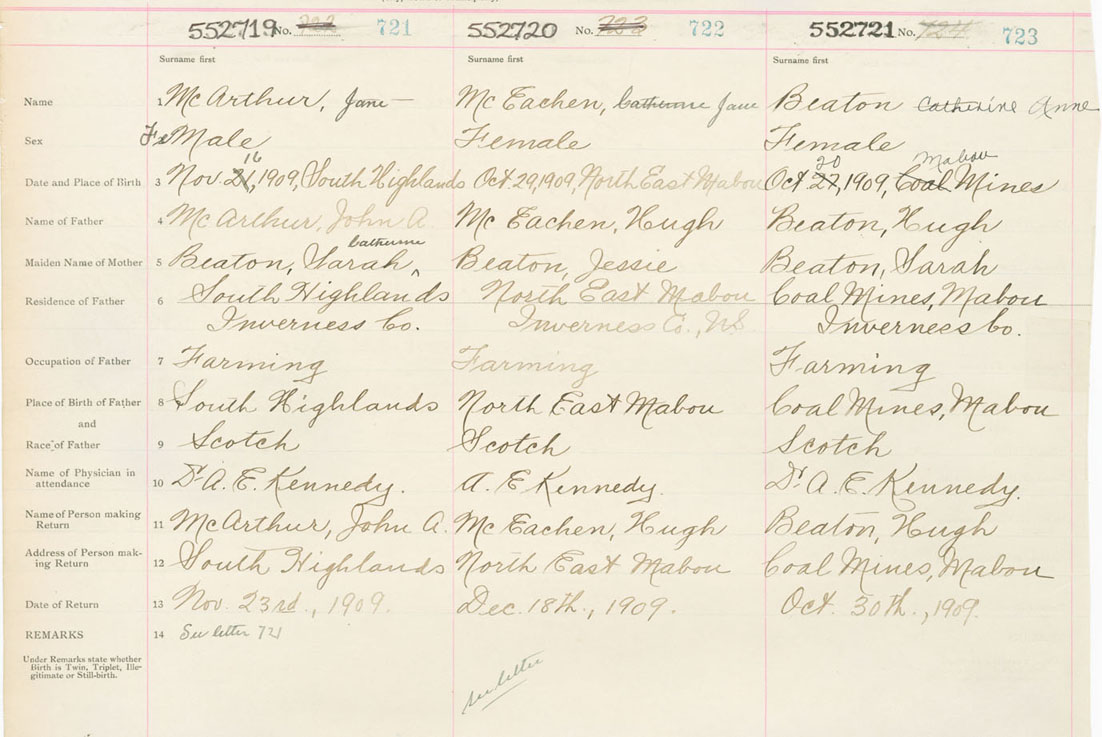 552719 No. 722 721 552720 No. 723 722 552721 No. 724 723
Surname first Surname first Surname first
Name 1 McArthur, Jane McEachen, Catherine Jane Beaton Catherine Anne
Sex FeMale Female Female
16 20 Mabou
Date and Place of Birth 3 Nov. 21, 1909, South Highlands Oct 29, 1909, North East Mabou Oct. 27, 1909, Coal Mines
Name of Father 4 McArthur, John A. McEachen, Hugh Beaton, Hugh
Catherine
Maiden Name of Mother 5 Beaton, Sarah ^ Beaton, Jessie Beaton, Sarah
Residence of Father 6 South Highlands North East Mabou Coal Mines, Mabou
Inverness Co. Inverness Co., N.S. Inverness Co.
Occupation of Father 7 Farming Farming Farming
Place of Birth of Father 8 South Highlands North East Mabou Coal Mines, Mabou
and
Race of Father 9 Scotch Scotch Scotch
Name of Physician in
attendance 10 Dr A. E. Kennedy. A. E Kennedy. Dr A. E. Kennedy.
Name of Person making
Return 11 McArthur, John A. McEachen, Hugh Beaton, Hugh
Address of Person mak-
ing Return 12 South Highlands North East Mabou Coal Mines, Mabou
Date of Return 13 Nov. 23rd., 1909. Dec. 18th., 1909. Oct. 30th., 1909.
REMARKS 14 See letter 721
Under Remarks state whether
Birth is Twin, Triplet, Ille-
gitimate or Still-birth.
see letter